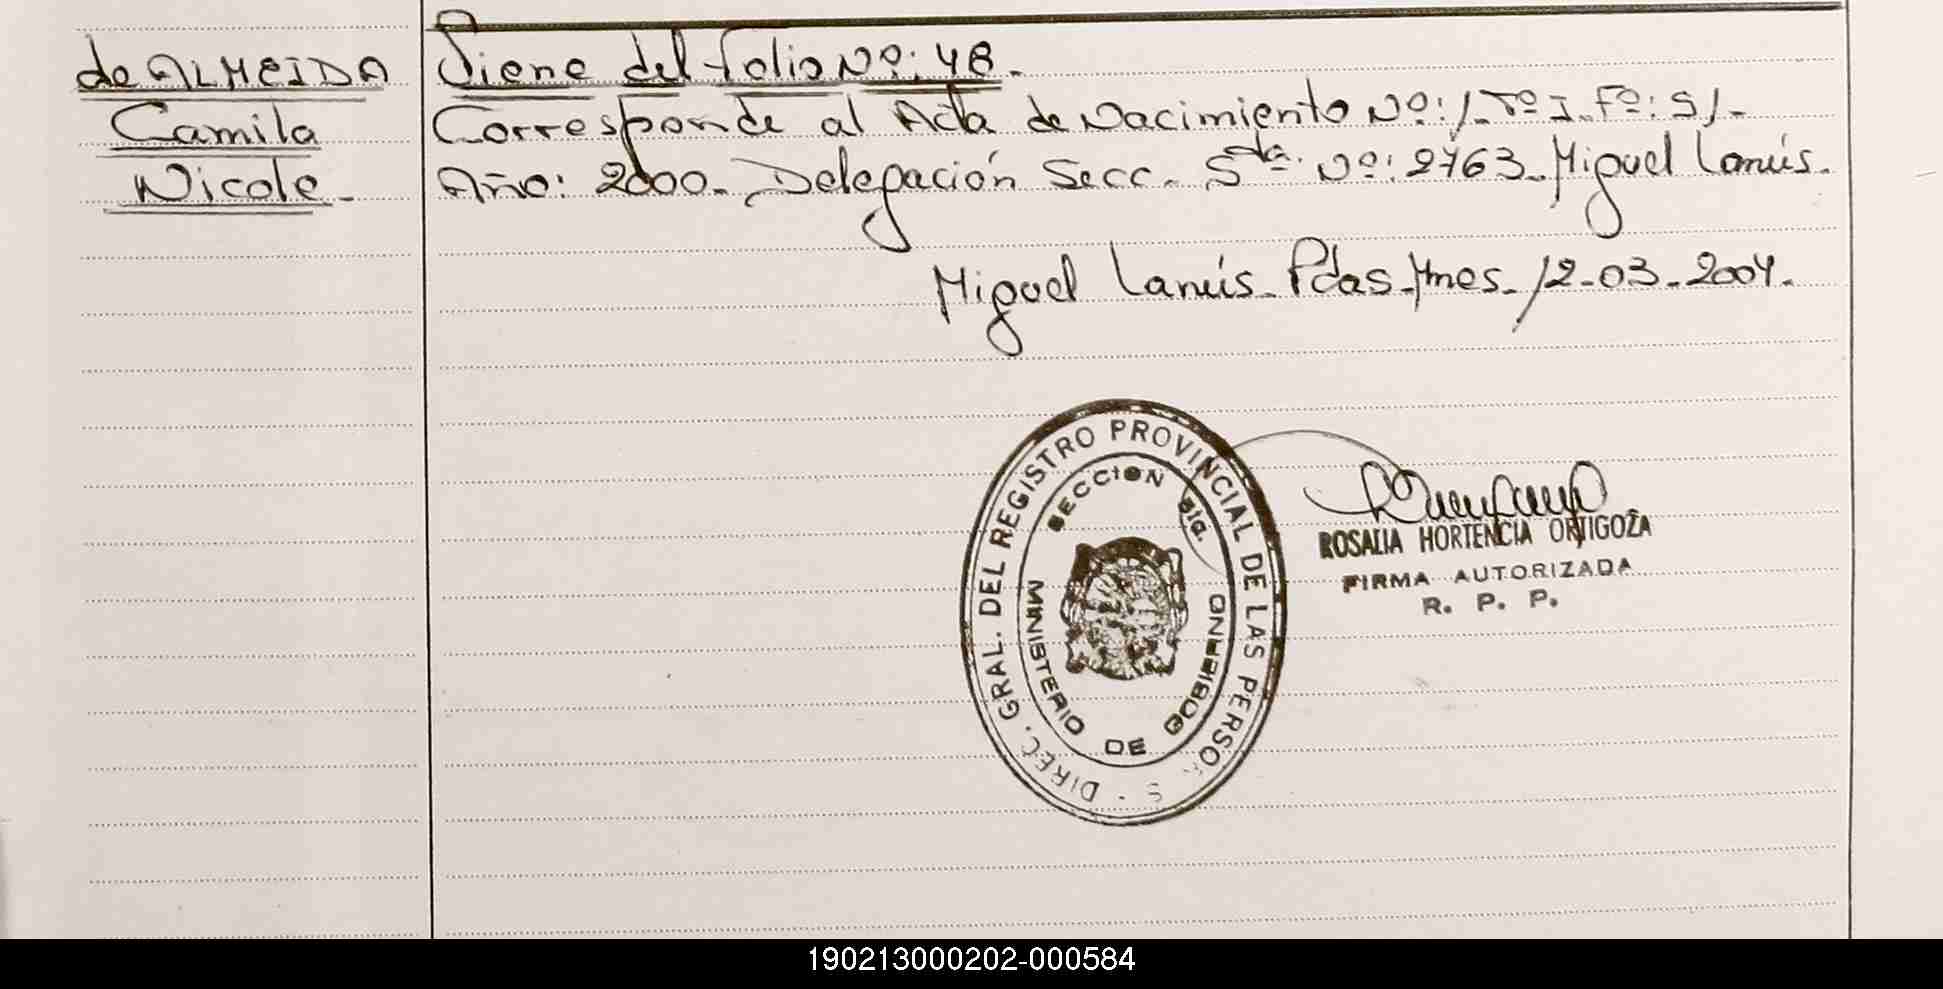 de ALMEIDA
Camila
Nicole.
Viene del folio Nº: 48.
Corresponde al Acta de Nacimiento Nº: 1. Tº I. Fº: 51.
Año: 2000. Delegación Secc. 5ta. Nº: 2763. Miguel Lanús.
Miguel Lanús. Pdas. Mnes. 12-03-2004.
DIREC. GRAL. DEL REGISTRO PROVINCIAL DE LAS PERSO S
SECCION 5ta.
MINISTERIO DE GOBIERNO
ROSALIA HORTENCIA ORTIGOZA
FIRMA AUTORIZADA
R. P. P.
190213000202-000584